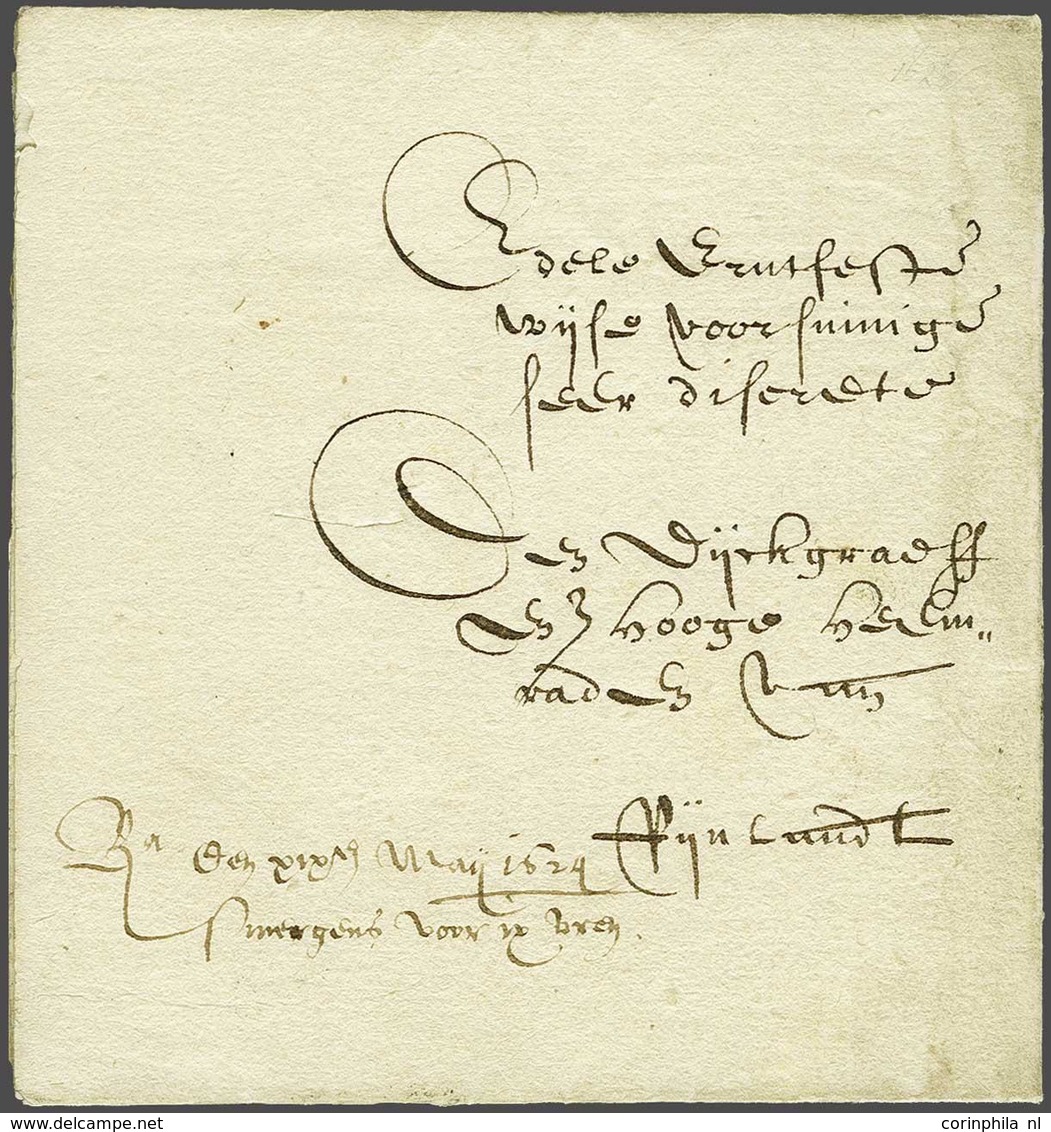 Edele Erntfeste
wijse voorsinnige
seer discrete
Den Dijckgraeff
en Hooge Heem„
raden van
Rijnlandt
Ra den xixen Maij 1624
smergens voor ix uren
www.delcampe.net
corinphila nl